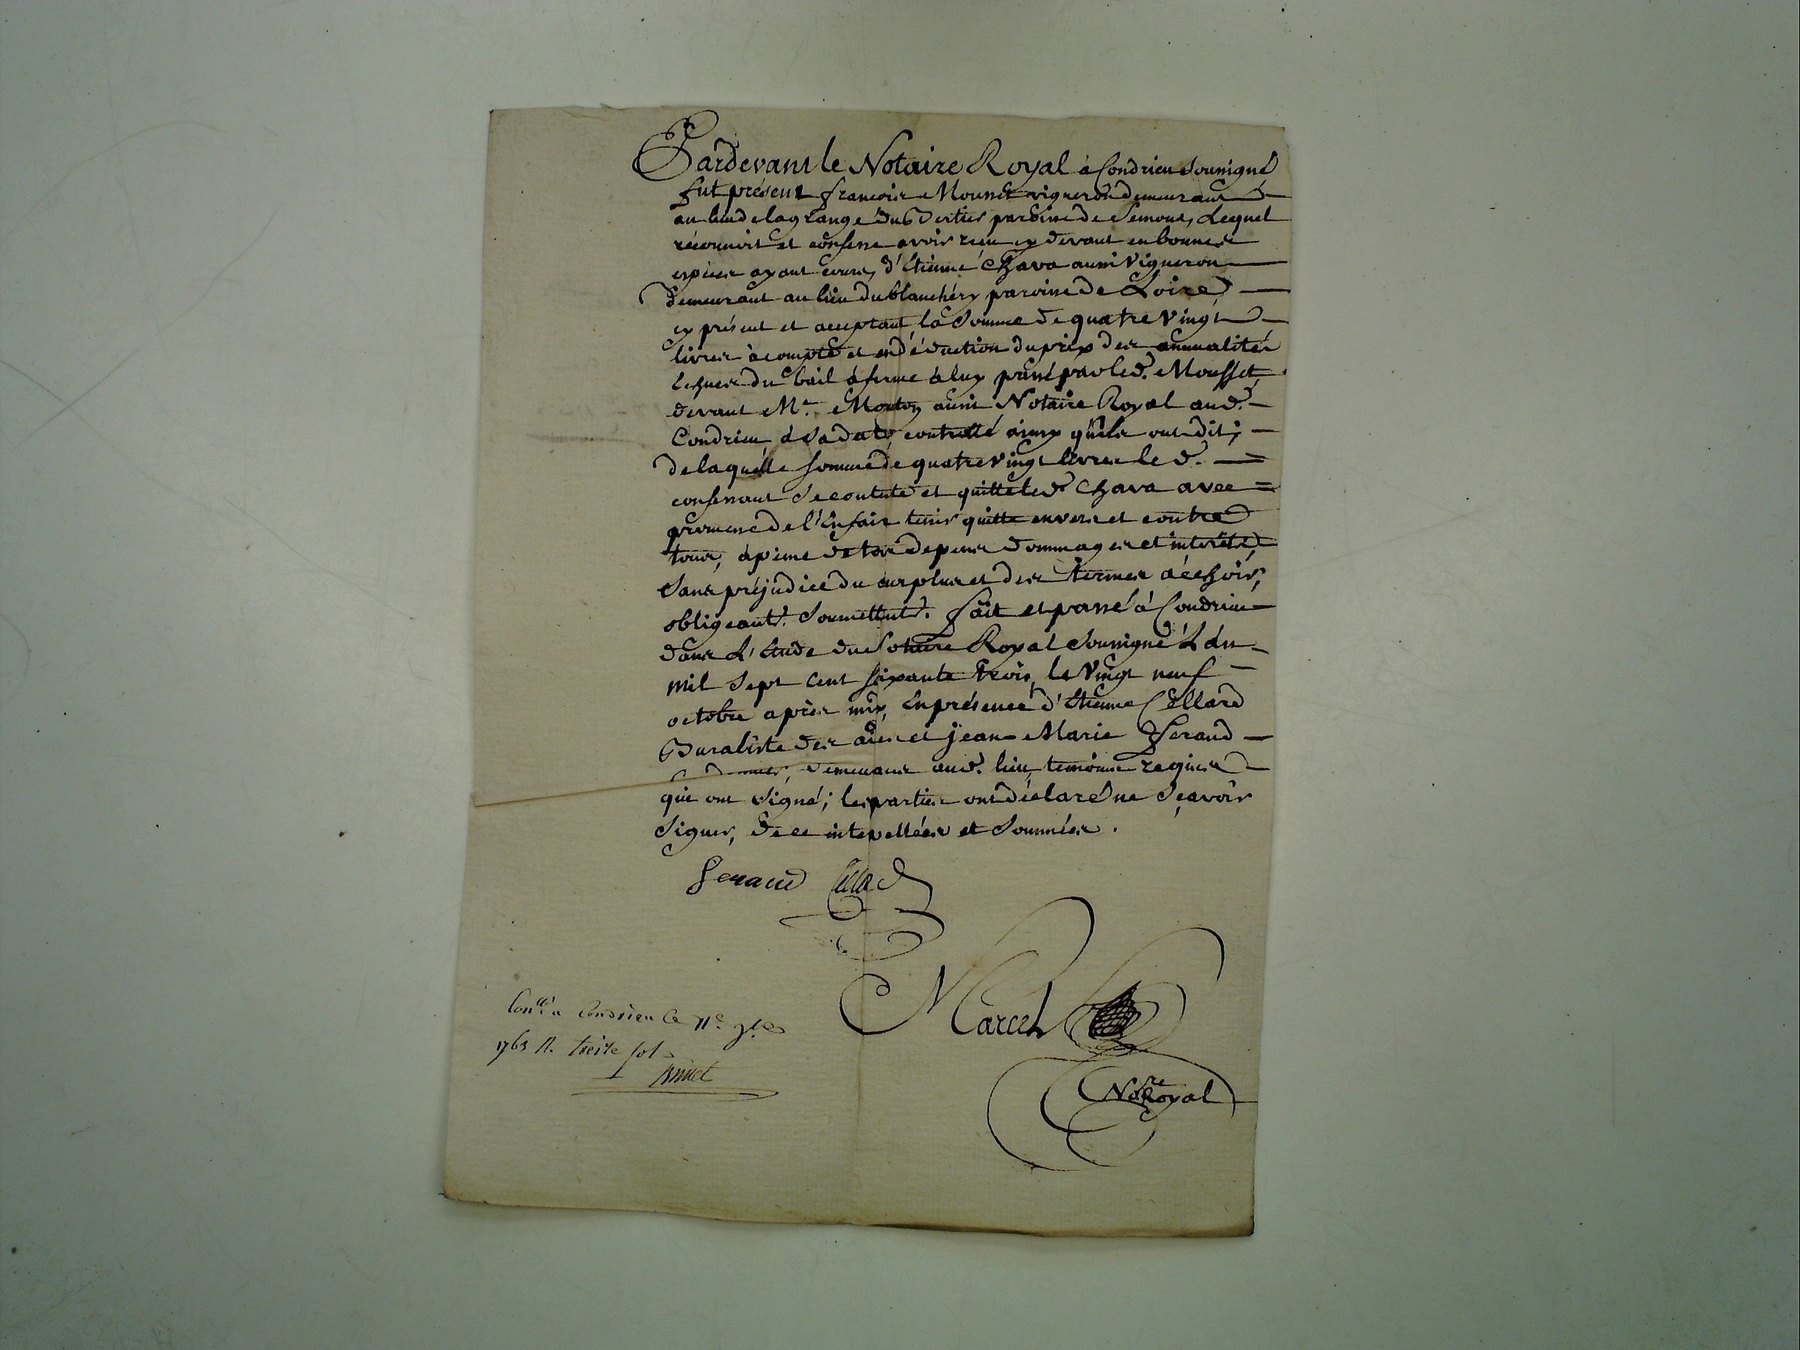 Pardevant le Notaire Royal à Condrieu Soussigné
fut présent françois Mousset vigneron demeurant
au lieu de la grange du paroisse de Semons, Lequel
réconnoit et confesse avoir reçu cy devant en bonnes
espèces ayant cours, d'Etienne Chava aussi Vigneron
demeurant au lieu du blanchéry paroisse de Loire
cy présent et acceptant, la Somme de quatre Vingt
livres àcompte et en déduction du prix des annualités
échues du bail à ferme à luy passé par led. Mousset
devant Me. Morton aussi Notaire Royal aud.
Condrieu à Sa date, controllé ainsy qu'ils ont dit;
de laquelle Somme de quatre Vingt livres le d.
confessant Se contente et quitte led. Chava avec
promesse de l'En faire tenir quitte envers et contre
tous, à peine de tous depens dommages et intérêts
Sans préjudice du Surplus et des termes à échoir,
obligeant. Soumettant. Fait et passé à Condrieu
dans L'Etude du Notaire Royal Soussigné L'an
Mil Sept Cent Soixante trois, le Vingt neuf
octobre après midy, En présence d'Etienne Cellard
Buraliste des aides et jean Marie Feraud
demeurans aud. lieu, témoins requis
qui ont Signé; les parties ont déclaré ne Sçavoir
Signer, de ce intepellées et Sommées.
Feraud Cellard
Marcel
Nore Royal
Conllé. a Condrieu Ce 9bre
1763 R. treize sols